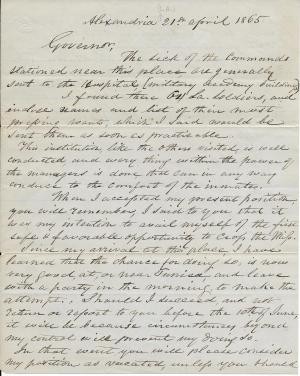 Alexandria 21st april 1865
Governor,
The sick of the Commands
stationed near this place are generally
sent to the Hospital (military academy building)
I found there 64 La. soldiers, and
indose names and list of their most
pressing wants, which I said would be
sent them as soon as practicable.
This institution like the others visited is well
conducted and every thing within the power of
the managers is done that can in any way
conduce to the comfort of the inmates.
When I accepted my present position
you will remember, I said to you that it
was my intention to avail myself of the first
safe & favorable opportunity to cross the Miss.
Since my arrival at this place I have
learned that the chance for doing so, is now
very good at, or near Tunica, and leave
with a party in the morning to make the
attempt. Should I succeed, and not
return or report to you before the 10th of June,
it will be because circumstances beyond
my control will prevent my doing so.
In that event you will please consider
my position as vacated, unless you should